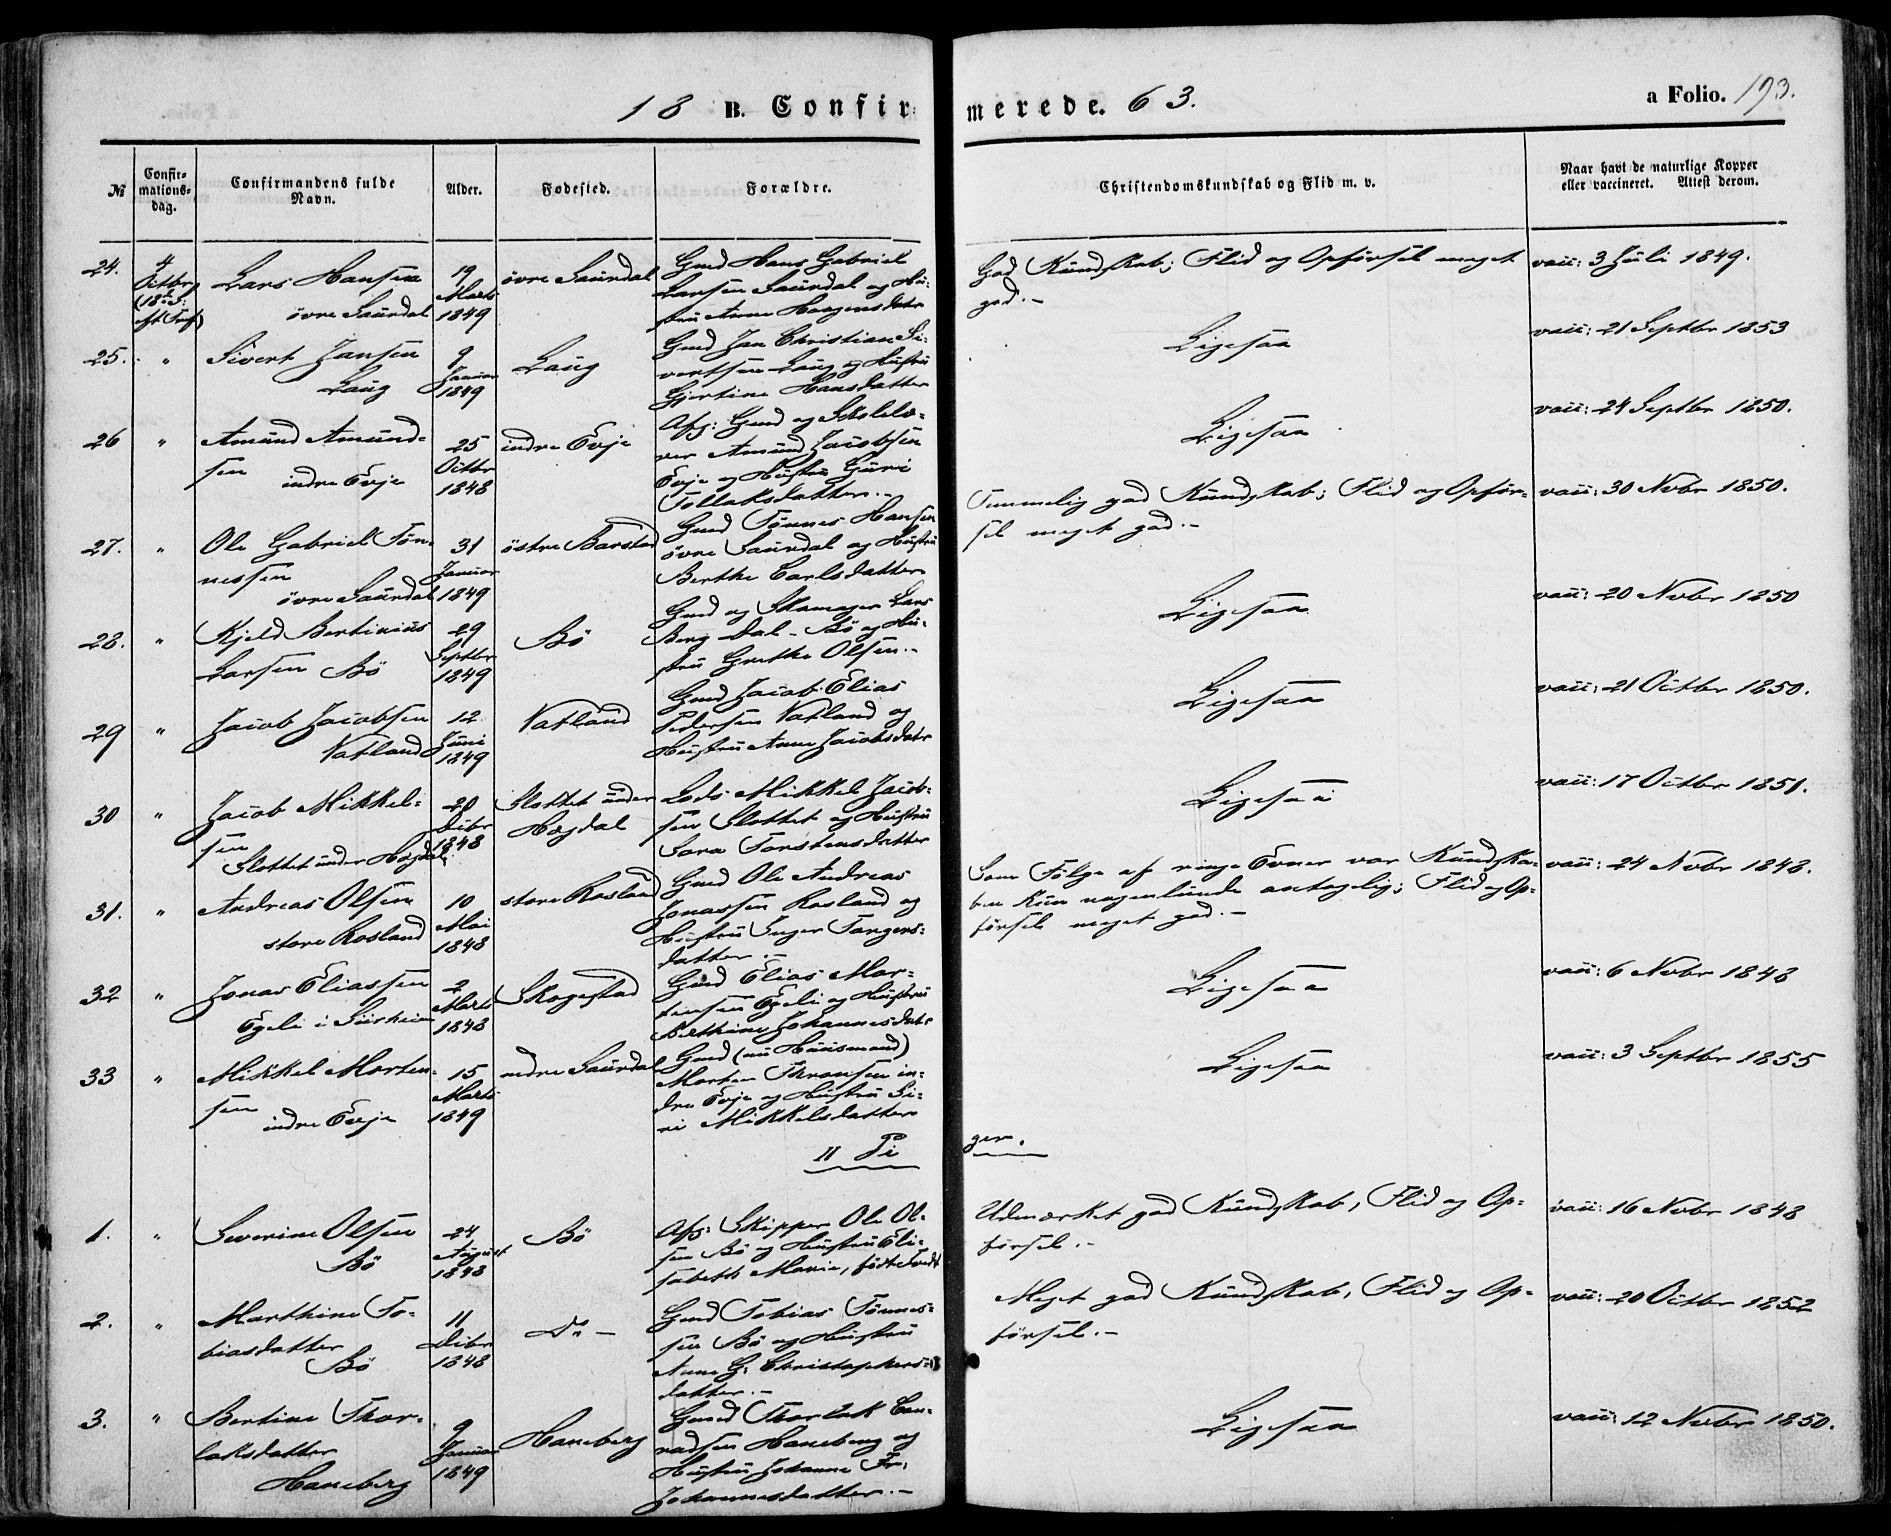 18 B. Confirmerede. 63.
a Folio. 193.
№
Confirmations-dag.
Confirmandens fulde Navn.
Alder.
Fødested.
Forældre.
Christendomskundskab og Flid m. v.
Naar havt de naturlige Kopper eller vaccineret. Attest derom.
24.
4 Octbr (18de S: eft Tref)
Lars Hansen
øvre Saurdal
19 Marts 1849
øvre Saurdal
Gmd Hans Gabriel
Larsen Saurdal og Hu-
stru Anne Haagensdatr
God Kundskab; Flid og Opførsel meget
god.-
vacc: 3 Juli 1849.
25. "
Sivert Jansen
Laug
9 Januar 1849
Laug
Gmd Jan Christian Si-
vertsen Laug og Hustru
Gjertine Hansdatter
Ligesaa
vacc: 21 Septbr 1853
26 "
Amund Amund-
sen
indre Evje
25 Octbr 1848
indre Evje
Afg: Gmd og Skolelæ-
rer Amund Jacobsen
Evje og Hustru Guri
Tollaksdatter.-
Ligesaa
vacc: 24 Septbr 1850.
27. "
Ole Gabriel Tøn-
nessen
øvre Saurdal
31 Januar 1849
østre Barstad
Gmd Tønnes Hansen
øvre Saurdal og Hustru
Berthe Carlsdatter
Temmelig god Kundskab; Flid og Opfør-
sel meget god.-
vacc: 30 Novbr 1850.
28. "
Kjeld Bertinius
Larsen Bö
29 Septbr 1849
Bö
Gmd og Skomager Lars
Berg Dal - Bö og Hu-
stru Grethe Olsen.-
Ligesaa
vacc: 20 Novbr 1850
29 "
Jacob Jacobsen
Vatland
12 Juni 1849
Vatland
Gmd Jacob Elias
Pedersen Vatland og
Hustru Anne Jacobsdatr
Ligesaa
vacc: 21 Octbr 1850.
30 "
Jacob Mikkel-
sen
Slottet under Høgdal
20 Decbr 1848
Slottet under
Høgdal
Lods Mikkel Jacob-
sen Slottet og Hustru
Sara Torstensdatter
Ligesaa
vacc: 17 Octbr 1851.
31. "
Andreas Olsen
store Rosland
10 Mai 1848
store Rosland
Gmd Ole Andreas
Jonassen Rosland og
Hustru Inger Torgers-
datter.-
Som Følge af ringe Evner var Kundska-
ben kun nogenlunde antagelig; Flid og Op-
førsel meget god.-
vacc: 24 Novbr 1848.
32 "
Jonas Eliassen
Egeli i Siirheim
2 Marts 1848
Skogestad
Gmd Elias Mor-
tensen Egeli og Hustru
Berthine Johannesdatr
Ligesaa
vacc: 6 Novbr 1848
33 "
Mikkel Morten-
sen
indre Evje
15 Marts 1849
nedre Saurdal
Gmd (nu Huusmand)
Morten Thronsen in-
dre Evje og Hustru Si-
ri Mikkelsdatter
Ligesaa
vacc: 3 Septbr 1855
II Piger.
1. "
Severine Olsen
Bö
24 August 1848
Bö
Afg: Skipper Ole Ol-
sen Bö og Hustru Eli-
sabeth Marie, født Tvedt
Udmærket god Kundskab, Flid og Op-
førsel.-
vacc: 16 Novbr 1848
2. "
Marthine To-
biasdatter
Bö
11 Decbr 1848
Do -
Gmd Tobias Tønnes-
sen Bö og Hustru
Anne G: Christophers-
datter.-
Meget god Kundskab, Flid og Op-
førsel.-
vacc: 20 Octbr 1852
3. "
Bertine Thor-
laksdatter
Haneberg
9 Januar 1849
Haneberg
Gmd Thorlak Con-
radsen Haneberg og
Hustru Johanne Fr:
Johannesdatter.-
Ligesaa
vacc: 12 Novbr 1850.